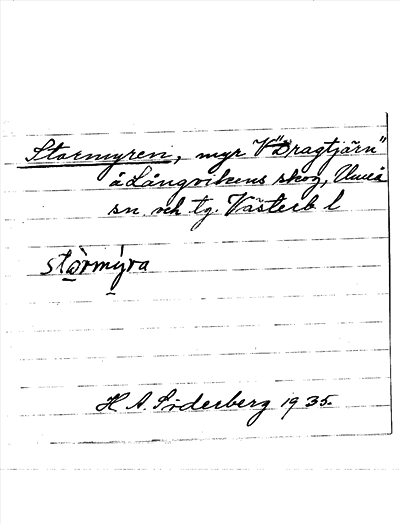 Stormyren, myr V "Dragtjärn"
å Långvikens skog, Umeå
sn. och tg. Västerb. l
stòrmýra
H. A. Söderberg 1935.